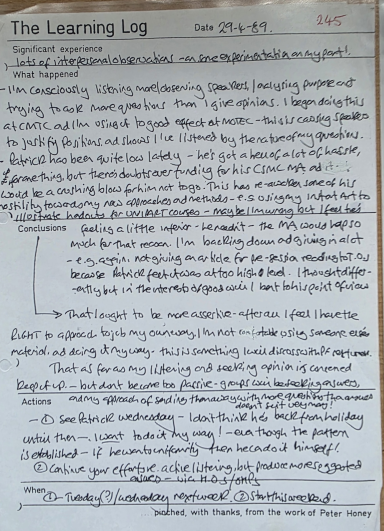 The Learning Log
Date 29-4-89.
245
Significant experience
lots of interpersonal observations - an some experimentation on my part!
What happened
- I'm consciously listening more, observing speakers, analysing purpose and
trying to ask more questions than I give opinions. I began doing this
at CMTC and I'm using it to good effect at MOTEC - this is causing speakers
to justify positions and shows I've listened by the nature of my questions.
- Patrick has been quite low lately - he's got a heck of a lot of hassle,
for one thing, but there's doubts over funding for his CSMC MA and it
would be a crushing blow for him not to go. This has re-awoken some of his
hostility towards my new approaches and methods - e.g. using my Intat Art to
illustrate handouts for UNIPART courses - maybe I'm wrong but I feel he's
Conclusions
feeling a little inferior - the MA would help so
much for that reason. I'm backing down and giving in a lot
- e.g. again, not giving an article for pre-session reading to T.O.s
because Patrick feels it was at too high a level. I thought differ-
-ently but in the interests of goodwill I bent to his point of view
→ That I ought to be more assertive - after all I feel I have the
RIGHT to approach the job my own way. I'm not comfortable using someone else's
material, and doing it my way - this is something I will discuss with P.
That as far as my listening and seeking opinion is concerned
keep it up - but don't become too passive - groups will be seeking answers,
and my approach of sending them away with more questions than answers
doesn't suit very many!
Actions
- ① See Patrick Wednesday - I don't think he's back from holiday
until then - I want to do it my way! - even though the pattern
is established - if he wants uniformity then he can do it himself!
② Continue your efforts re. active listening, but produce more suggested
answers - via H.O.s / OHPs
When
① - Tuesday (?) / Wednesday next week. ② Start this weekend.
poached, with thanks, from the work of Peter Honey